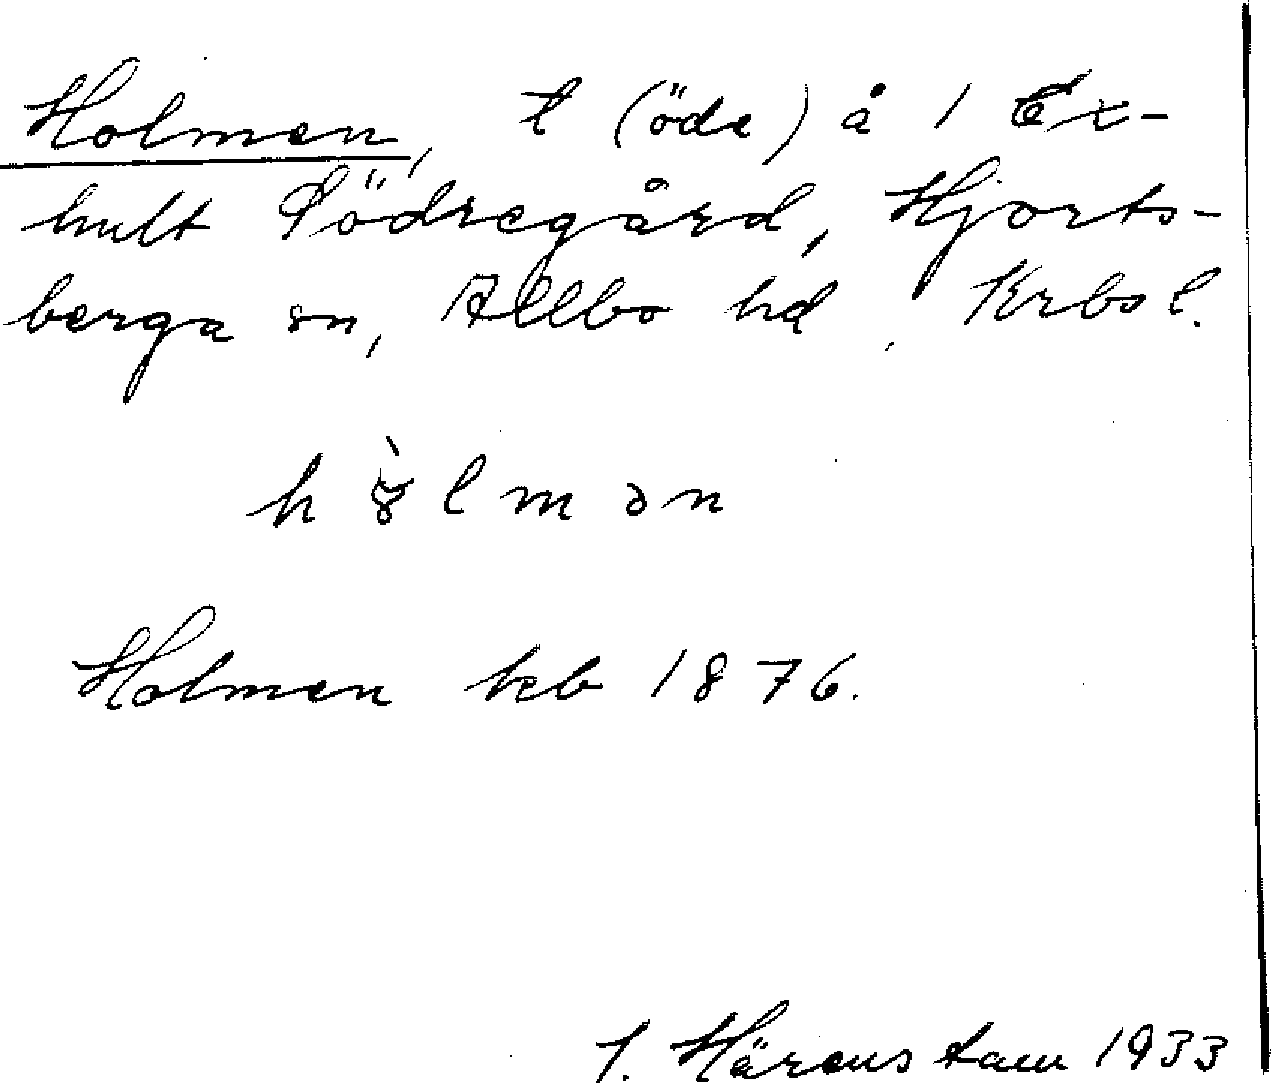 Holmen, t (öde) å 1 Ex-
hult Södregård, Hjorts-
berga sn, Allbo hd, Krbs l.
h ò̤ l m ə n
Holmen keb 1876.
I. Härenstam 1933